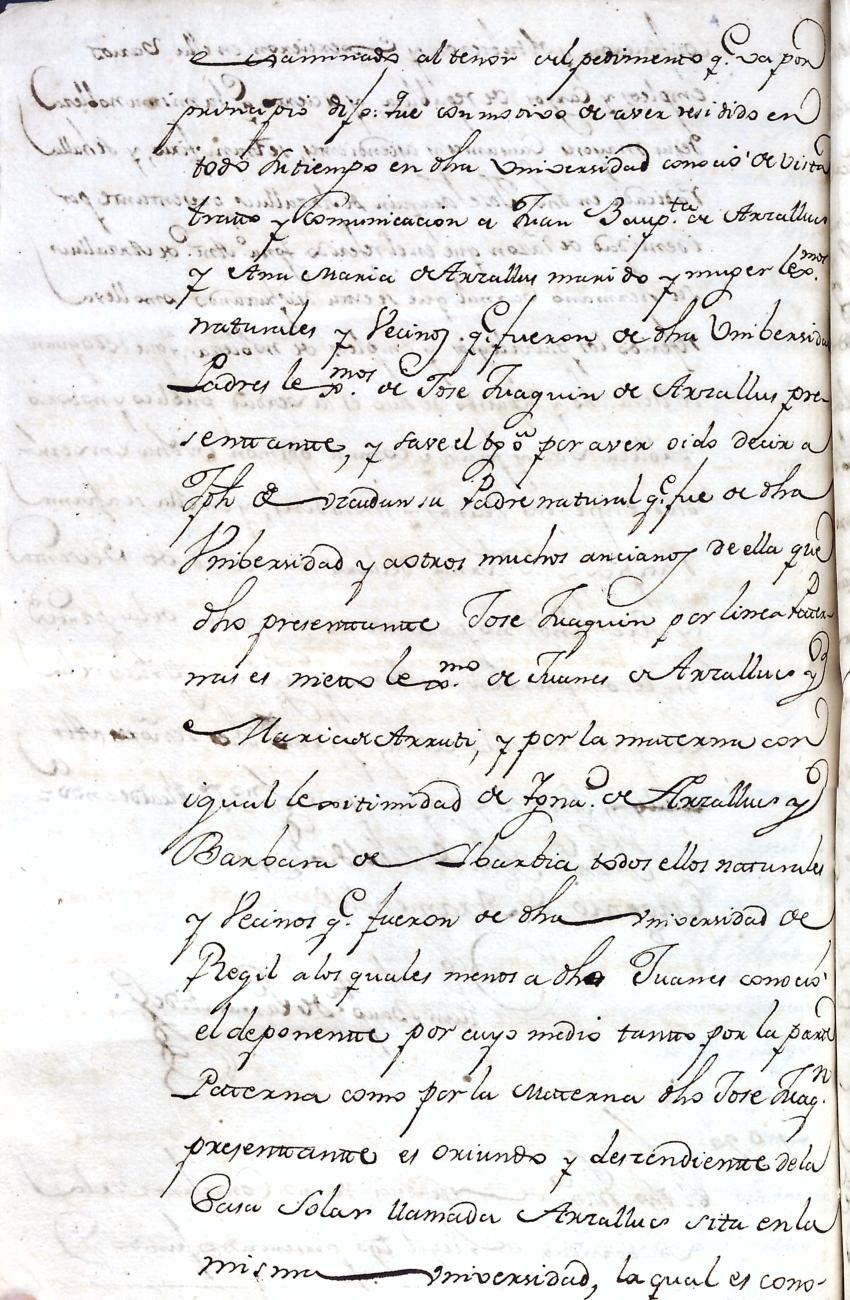 examinado al tenor del pedimento q.e va por
principio dijo: que con motivo de aver residido en
todo su tiempo en dha Universidad conoció de vista
tratto y comunicacion a Juan Baup.ta de Arzallus
y Ana Maria de Arzallus marido y muger lex.mos
naturales y Vecinos q.e fueron de dha Unibersidad
Padres lex.mos de Jose Juaquin de Arzallus pre-
senttantte, y save el tgo por aver oido decir a
Jph de su Padre natural q.e fue de dha
Unibersidad y a otros muchos ancianos de ella que
dho presenttantte Jose Juaquin por linea Pater-
na es nietto lex.mo de Juanes de Arzallus y
Maria de Arruti, y por la materna con
igual lexitimidad de Ygna.o de Arzallus y
Barbara de Ibarbia todos ellos naturales
y Vecinos q.e fueron de dha Universidad de
Regil a los quales menos a dho Juanes conoció
el deponentte por cuyo medio tantto por la parte
Paterna como por la Materna dho Jose Juaq.n
presenttantte es oriundo y descendientte de la
Casa Solar llamada Arzallus sita en la
misma Universidad, la qual es cono-